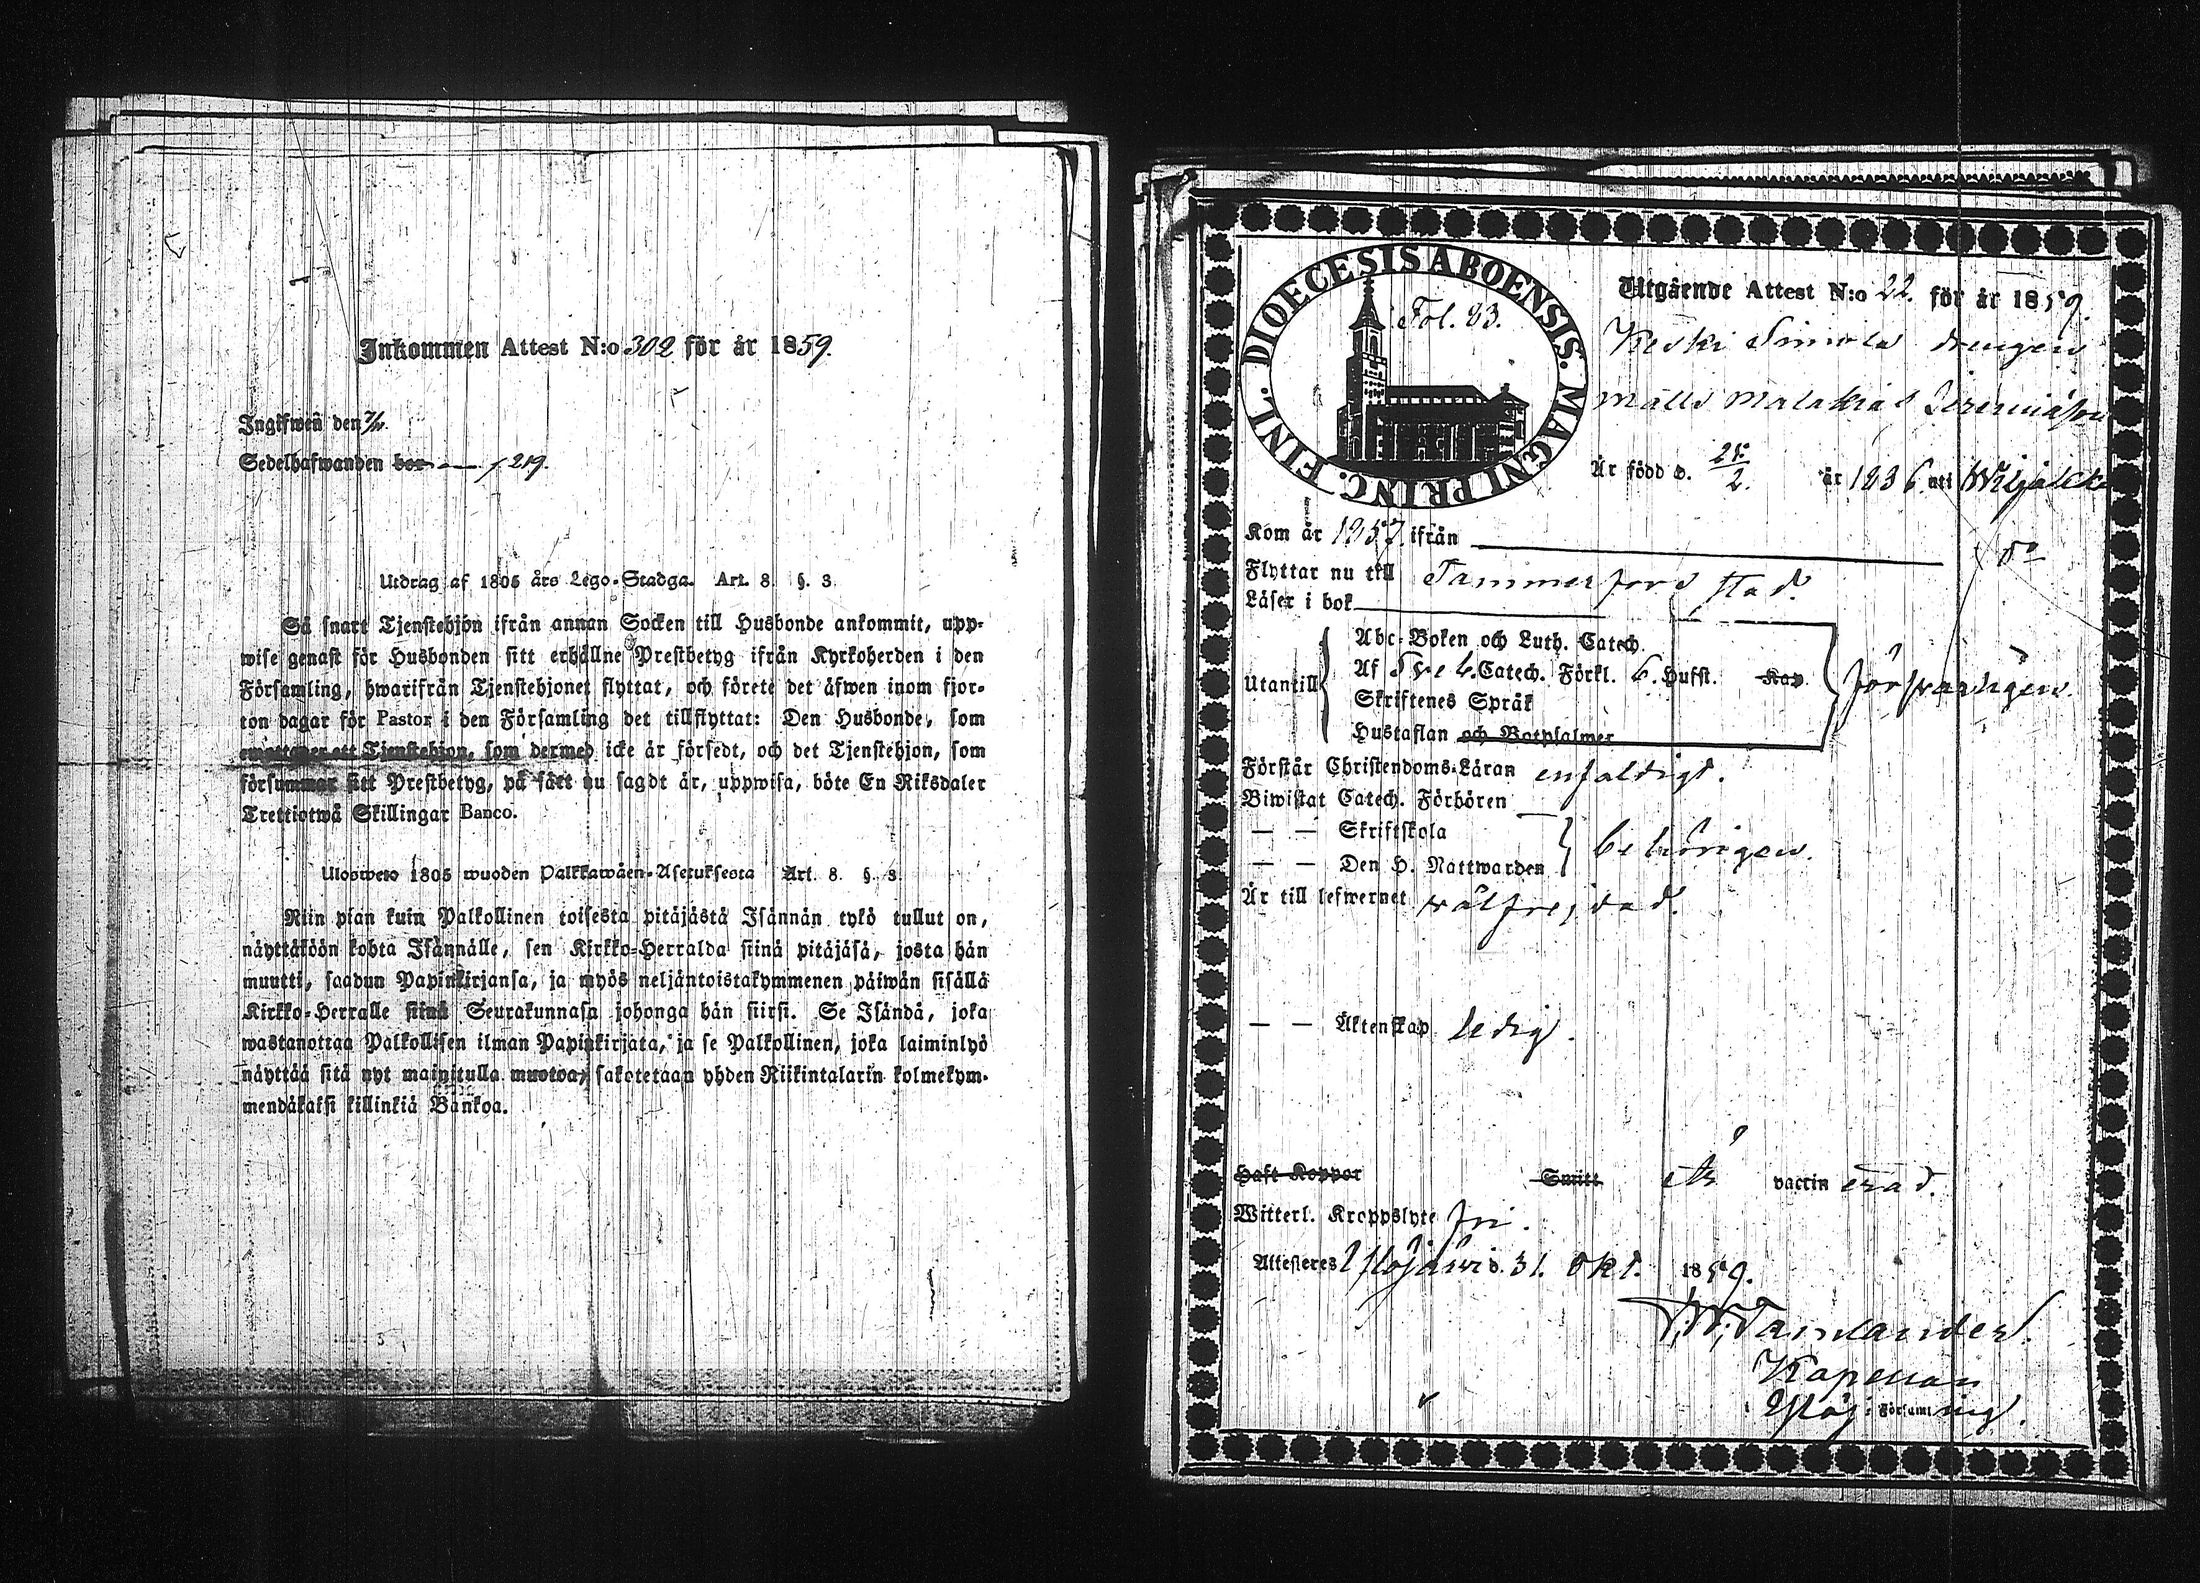 Inkommen Attest N:o 302 för år 1859.
Ingifwen den
Sedelhafwanden bor 219.
Utdrag af 1805 års Lego-Stadga. Art. 8. §. 3.
Så snart Tjenstehjon ifrån annan Socken till Husbonde ankommit, upp-
wise genast för Husbonden sitt erhållne Prestbetyg ifrån Kyrkoherden i den
Församling, hwarifrån Tjenstehjonet flyttat, och förete det äfwen inom fjor-
ton dagar för Pastor i den Församling det tillflyttat: Den Husbonde, som
emottager ett Tjenstehjon, som dermed icke är försedt, och det Tjenstehjon, som
försummar sitt Prestbetyg, på sätt nu sagdt är, uppwisa, böte En Riksdaler
Trettiotwå Skillingar Banco.
Ulosweto 1805 wuoden Palkkawäen-Asetuksesta Art. 8. §. 3.
Niin pian kuin Palkollinen toisesta pitäjästä Isännän tykö tullut on,
näyttäköön kohta Isännälle, sen Kirkko-Herralda siinä pitäjäsä, josta hän
muutti, saadun Papinkirjansa, ja myös neljäntoistakymmenen päiwän sisällä
Kirkko-Herralle siinä Seurakunnasa johonga hän siirsi. Se Isändä, joka
wastanottaa Palkollisen ilman Papinkirjata, ja se Palkollinen, joka laiminlyö
näyttää sitä nyt mainitulla muotoa, sakotetaan yhden Riikintalarin kolmekym-
mendäkaksi killinkiä Bankoa.
DIOECESIS ABOENSIS. MAGNI PRINC. FINL.
Fol. 83.
Utgående Attest N:o 22. för år 1859.
Keski Simola drengen
Matts Malakias Jeremiasson
Är född d. 28/2. år 1836. uti Wiljakka
Kom år 1857. ifrån do
Flyttar nu till Tammerfors stad.
Läser i bok
Utantill
Abc-Boken och Luth. Catech.
Af Sveb. Catech. Förkl. 6. Hufst. Kap.
Skriftenes Språk
Hustaflan och Botpsalmer
försvarligen.
Förstår Christendoms-Läran enfaldigt.
Biwistat Catech. Förhören
— — Skriftskola
— — Den H. Nattwarden
behörigen.
Är till lefwernet wälfrejdad.
— — Äktenskap ledig.
Haft Koppor Smitt är vaccinerad.
Witterl. Kroppslyte fri.
Attesteres Ylöjärwi d. 31. Okt. 1859.
Tamlander.
Kapellan
Ylöj: Församling.